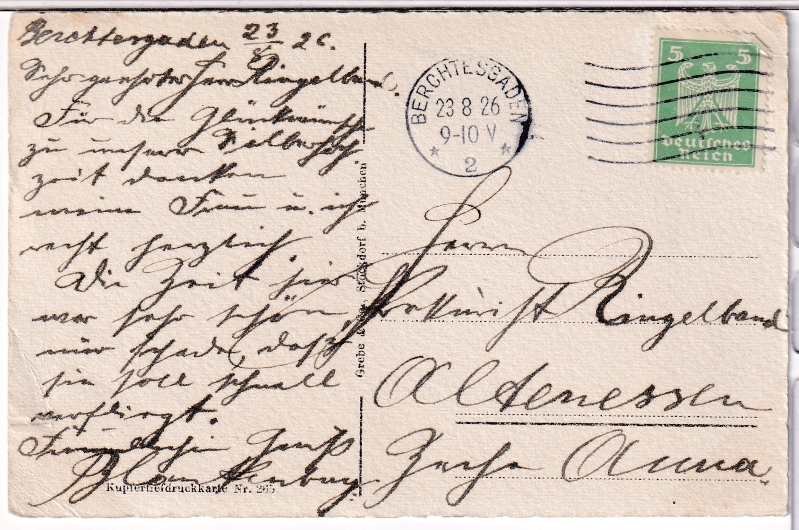 Berchtesgaden 23/8 26.
Sehr geehrter Herr Ringelband.
Für die Glückwünsche
zu unserer Silberhoch
zeit danken
meine Frau u. ich
recht herzlich.
Die Zeit hier
war sehr schön,
nur schade, dass
sie soll schnell
verfliegt.
Freundlichen Gruß
Blankenburg
Kupfertiefdruckkarte Nr. 265
Stockdorf b. München
BERCHTESGADEN
23 8 26
9-10 V
* 2 *
5 5
Deutsches
Reich
Herrn
Prokurist Ringelband
Altenessen
Zeche Anna